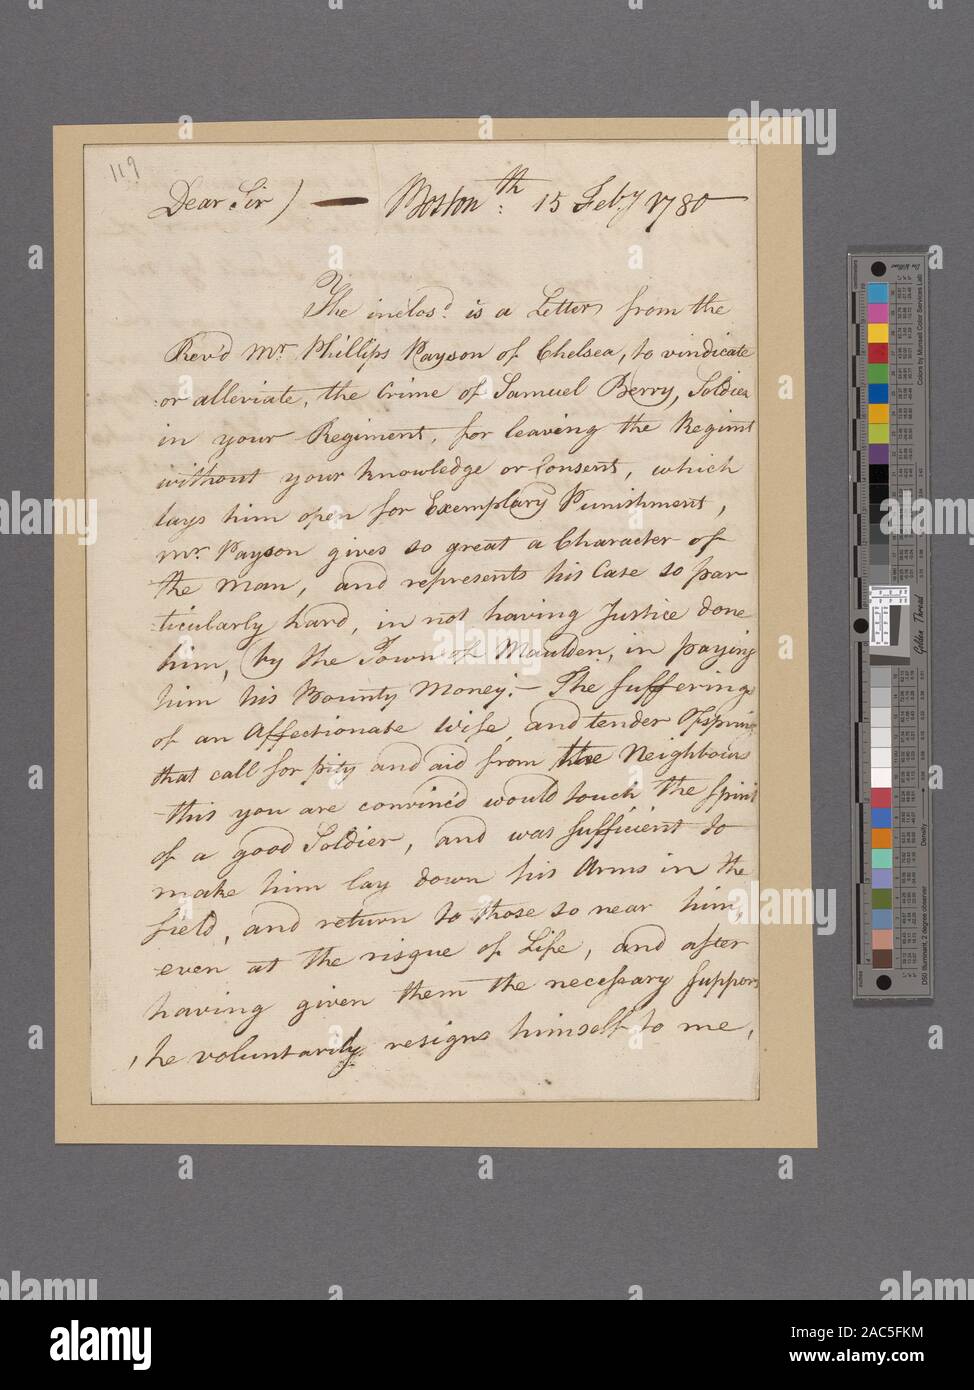 119
Dear Sir) — Boston th: 15 Feby 1780
The inclosd. is a Letter from the
Rev'd Mr. Phillips Payson of Chelsea, to vindicate
or alleviate, the Crime of Samuel Berry, Soldier
in your Regiment, for leaving the Regimt
without your knowledge or Consent, which
lays him open for Exemplary Punishment,
Mr. Payson gives so great a Character of
the man, and represents his Case so par
ticularly hard, in not having Justice done
him, by the Town of Maulden, in paying
him his Bounty Money.— The suffering
of an Affectionate Wife, and tender Ofspring
that call for pity and aid from the Neighbours
this you are convinc'd would touch the Spirit
of a good Soldier, and was sufficient to
make him lay down his Arms in the
field, and return to those so near him,
even at the risque of Life, and after
having given them the necessary Support
he voluntarily resigns himself to me,
alamy
Image ID: 2AC5FKM
www.alamy.com
Golden Thread
Colors by Munsell Color Services Lab
D50 Illuminant, 2 degree observer
Density